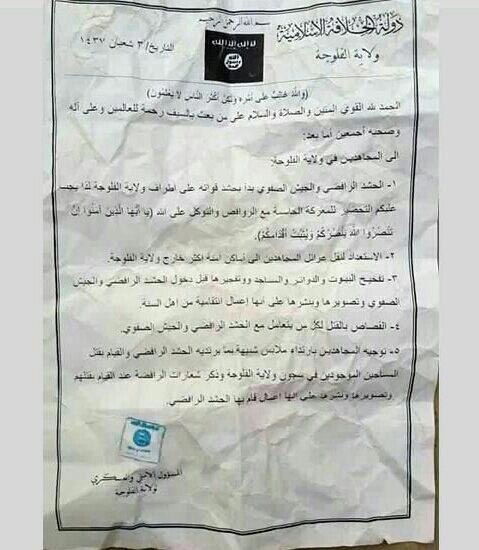 بسم الله الرحمن الرحيم
دولة الخلافة الاسلامية
ولاية الفلوجة
التاريخ/ ٣ شعبان ١٤٣٧
لا إله إلا الله
(والله غالب على أمره ولكن أكثر الناس لا يعلمون)
الحمد لله القوي المتين والصلاة والسلام على من بعث بالسيف رحمة للعالمين وعلى آله
وصحبه أجمعين أما بعد:
الى المجاهدين في ولاية الفلوجة:
١- الحشد الرافضي والجيش الصفوي بدأ بحشد قواته على اطراف ولاية الفلوجة لذا يجب
عليكم التحضير للمعركة الحاسمة مع الروافض والتوكل على الله (يا أيها الذين آمنوا إن
تنصُروا اللهَ يَنصُركُم وَيُثبِّت أقدامكُم).
٢- الاستعداد لنقل عوائل المجاهدين الى أماكن امنة اكثر خارج ولاية الفلوجة.
٣- تفخيخ البيوت والدوائر والمساجد وتفجيرها قبل دخول الحشد الرافضي والجيش
الصفوي وتصويرها ونشرها على انها اعمال انتقامية من اهل السنة.
٤- القصاص بالقتل لكل من يتعامل مع الحشد الرافضي والجيش الصفوي.
٥- توجيه المجاهدين بارتداء ملابس شبيهة بما يرتديه الحشد الرافضي والقيام بقتل
المساجين الموجودين في سجون ولاية الفلوجة وذكر شعارات الرافضة عند القيام بقتلهم
وتصويرها ونشرها على انها اعمال قام بها الحشد الرافضي.
المسؤول الأمني والعسكري
لولاية الفلوجة